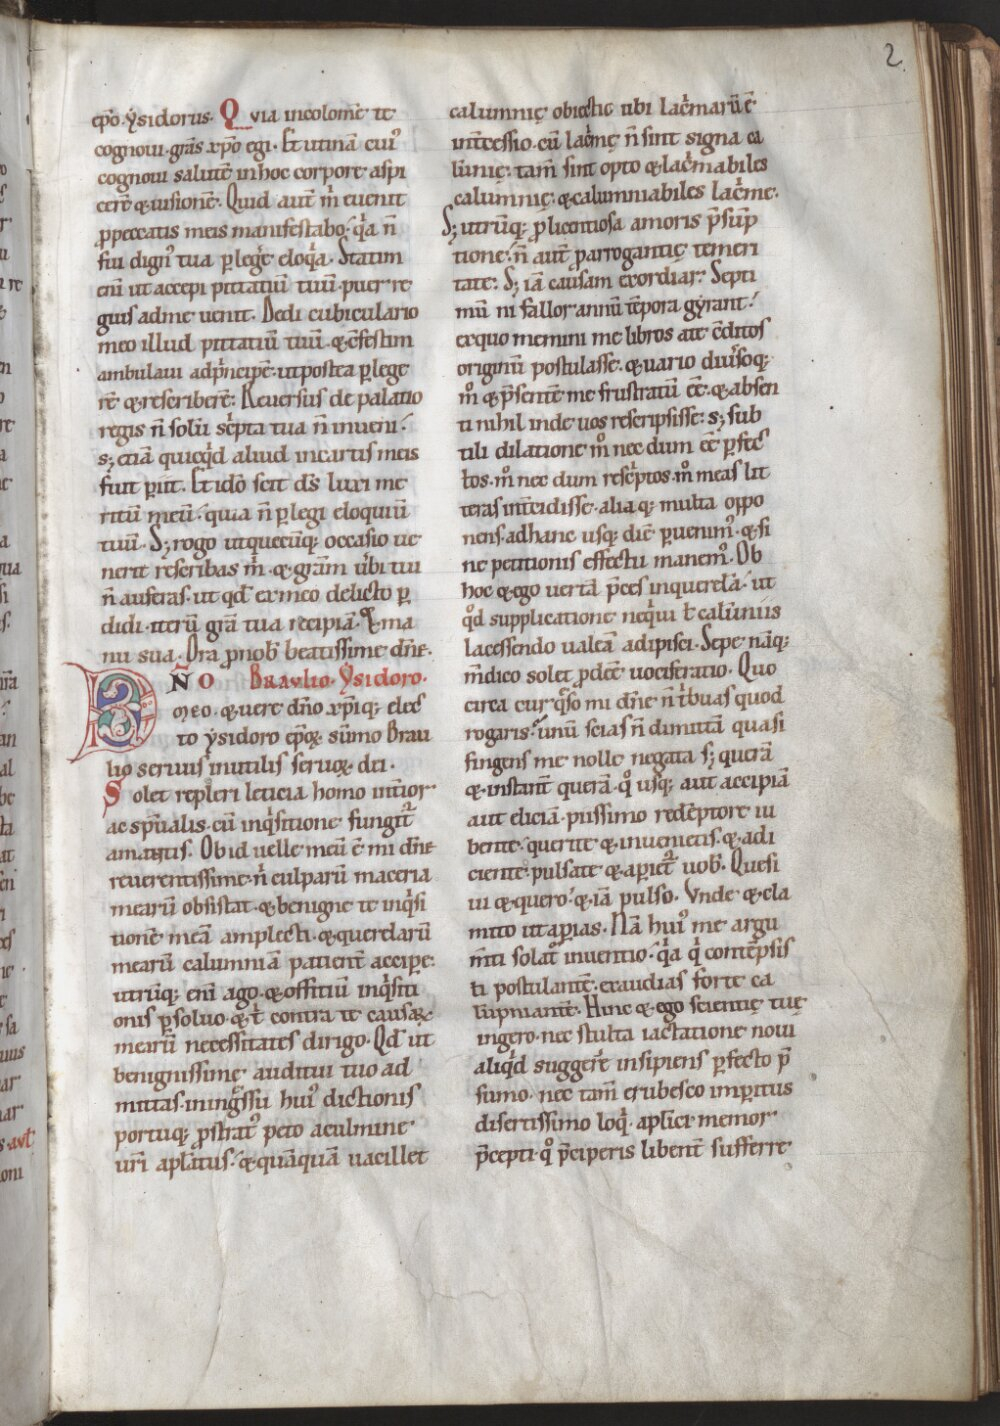 2
ep̄o ysidorus. Quia incolomē te
cognoui. gr̄as xp̄o egi. Et utinā cui᷒
cognoui salutē in hoc corpore aspi
cerē & uisionē. Quid aut̄ m̄ euenit
ꝓpeccatis meis manifestabo. qͥa n̄
fui dign᷒ tua ꝑlegere eloqͥa. Statim
eni ut accepi pittatiū tuū. puer re
gius ad me uenit. Dedi cubiculario
meo illud pittatiū tuū. & cōfestim
ambulaui ad pͥncipē. ut postea ꝑlege
rē & rescriberē. Reuersus de palatio
regis n̄ solū scͥpta tua n̄ inueni.
s; etiā quicqͥd aliud in cartis meis
fuit ꝑiit. Et idō scit d̄s luxi me
ritū meū. quia n̄ ꝑlegi eloquiū
tuū. S; rogo ut quecūq; occasio ue
nerit rescribas m̄. & grām uͬbi tui
n̄ auferas. ut qd̄ ex meo delicto ꝑ
didi. iterū grā tua recipiā. & ma
nu sua. Ora ꝓ nob̄ beatissime dn̄e.
DN̄O Braulio Ysidoro.
meo. & uere dn̄o xp̄iq; elec
to ysidoro ep̄oꝝ sūmo Brau
lio seruus inutilis scruoꝝ dei.
Solet repleri leticia homo intͥior
ac spūalis. cū inqͥsitione fungit᷑
amantis. Ob id uelle meū ē mi dn̄e
reuerentissime. nͥ culparū maceria
mearū obsistat. & benigne te inqͥsi
tionē meā amplecti. & querelarū
mearū calumniā patient̄ acciꝑe.
utrūq; eni ago. & offitiū inqͥsiti
onis ꝑsoluo. & t̄ contra te causaꝝ
mearū necessitates dirigo. Qd̄ ut
benignissime auditui tuo ad
mittas. in ingͣssu hui᷒ dictionis
portuq; ꝓstrat᷒ peto a culmine
uri aplatus. & quāquā uacillet
calumnię obiectio ubi lacͥmarū ē
int̄cessio. cū lacͥmę n̄ sint signa ca
lūnię. tam̄ sint opto & lacͥmabiles
calumnię. & calumniabiles lacͥme.
S; utrūq; ꝓ licentiosa amoris p̄sūp
tione. n̄ aut̄ ꝓ arrogantię temeri
tate. S; iā causam exordiar. Septi
mū ni fallor annū tēpora gyrant.
ex quo memini me libros a te cōditos
originū postulasse. & uario diuͥsoq;
mͦ & p̄sentē me frustratū eē. & absen
ti nihil inde uos rescripsisse. s; sub
tili dilatione mͦ nec dum eē ꝑfec
tos. mͦ nec dum rescͥptos. mͦ meas lit
teras int̄cidisse. aliaq; multa oppo
nens. ad hanc usq; diē ꝑuenim᷒. & si
ne petitionis effectu manem᷒. Ob
hoc & ego uertā p̄ces in querelā. ut
qͦd supplicatione neqͥui t̄ calūniis
lacessendo ualeā adipisci. Sepe nāq;
m̄dico solet ꝓdeē uociferatio. Quo
circa cur qͣso mi dn̄e n̄ tͥbuas quod
rogaris. unū scias n̄ dimittā quasi
fingens me nolle negata s; querā
& instant̄ querā qͦ usq; aut accipiā
aut eliciā. piissimo redēptore iu
bente. querite & inuenietis. & adi
ciente. pulsate & aꝑiet᷑ uob̄. Quesi
ui & quero. & iā pulso. Vnde & cla
mito ut aꝑias. Nā hui᷒ me argu
m̄ti solat᷑ inuentio. qͥa qͥ contēpsis
ti postulantē. exaudias forte ca
lūpniantē. Hinc & ego scientię tuę
ingero. nec stulta iactatione noui
aliqͥd suggerē insipiens ꝑfecto p̄
sumo. nec tam̄ erubesco imꝑitus
disertissimo loqͥ. aplici memor
p̄cepti. qͦ p̄ciperis libent̄ sufferre